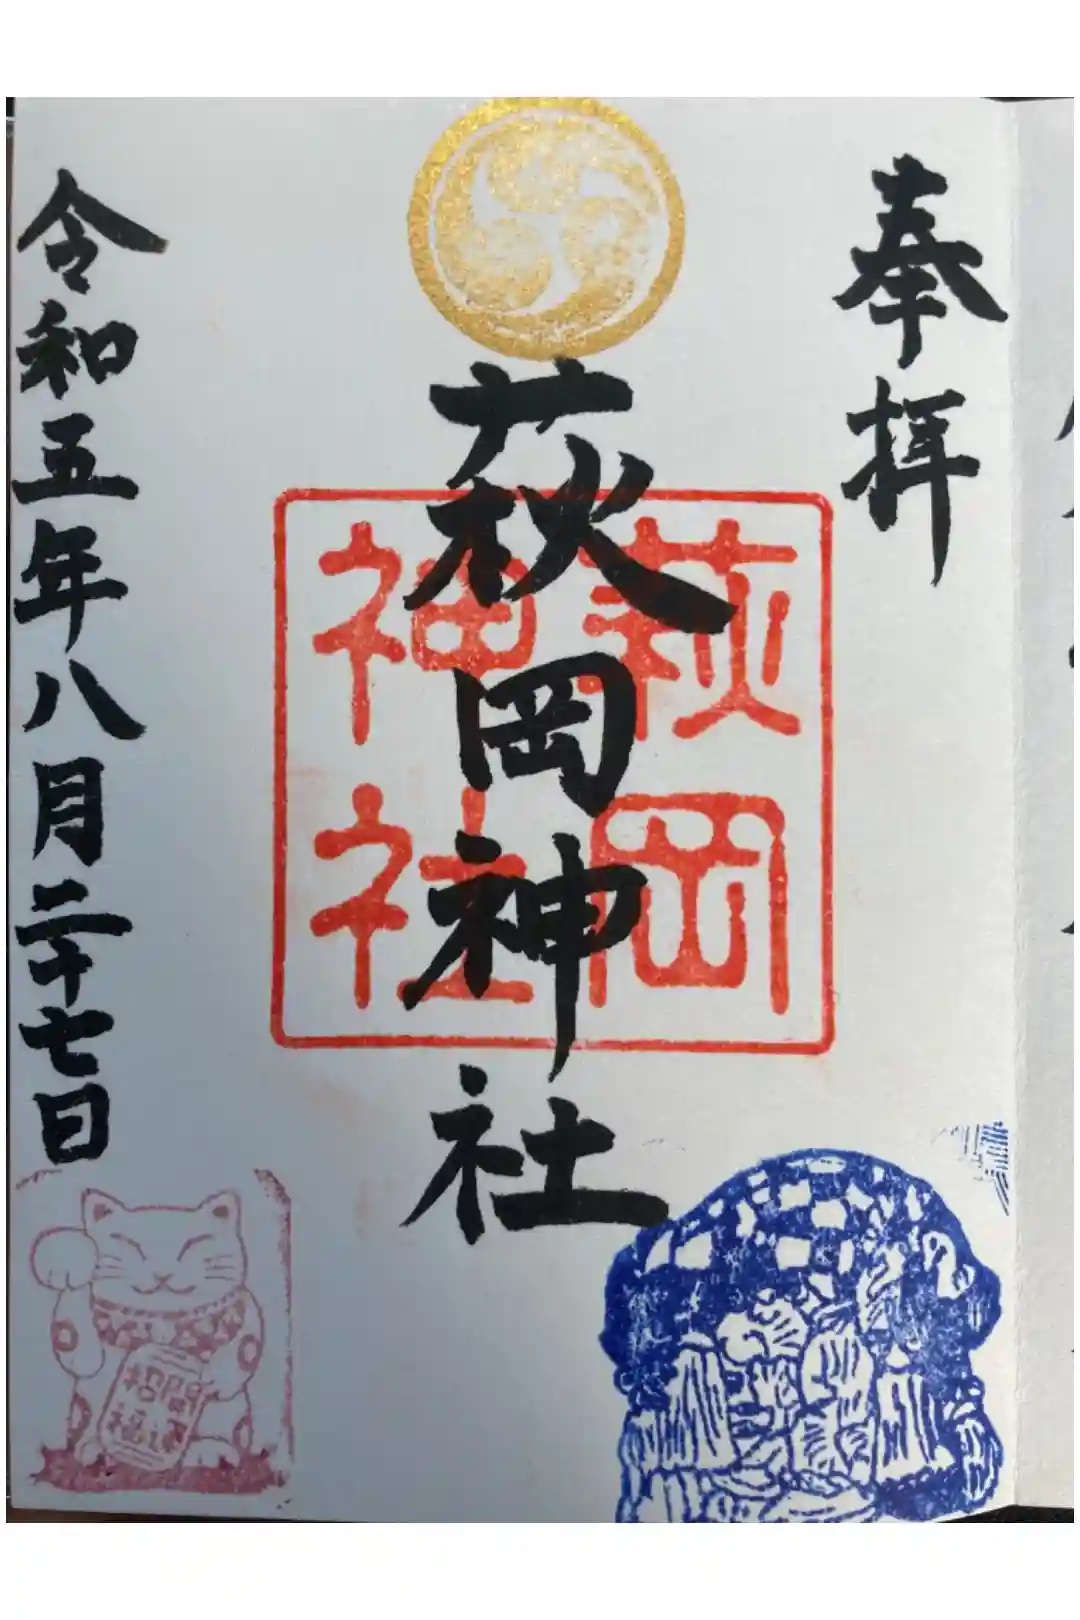 奉拝
萩岡神社
萩岡
神社
令和五年八月二十七日
招開
福運